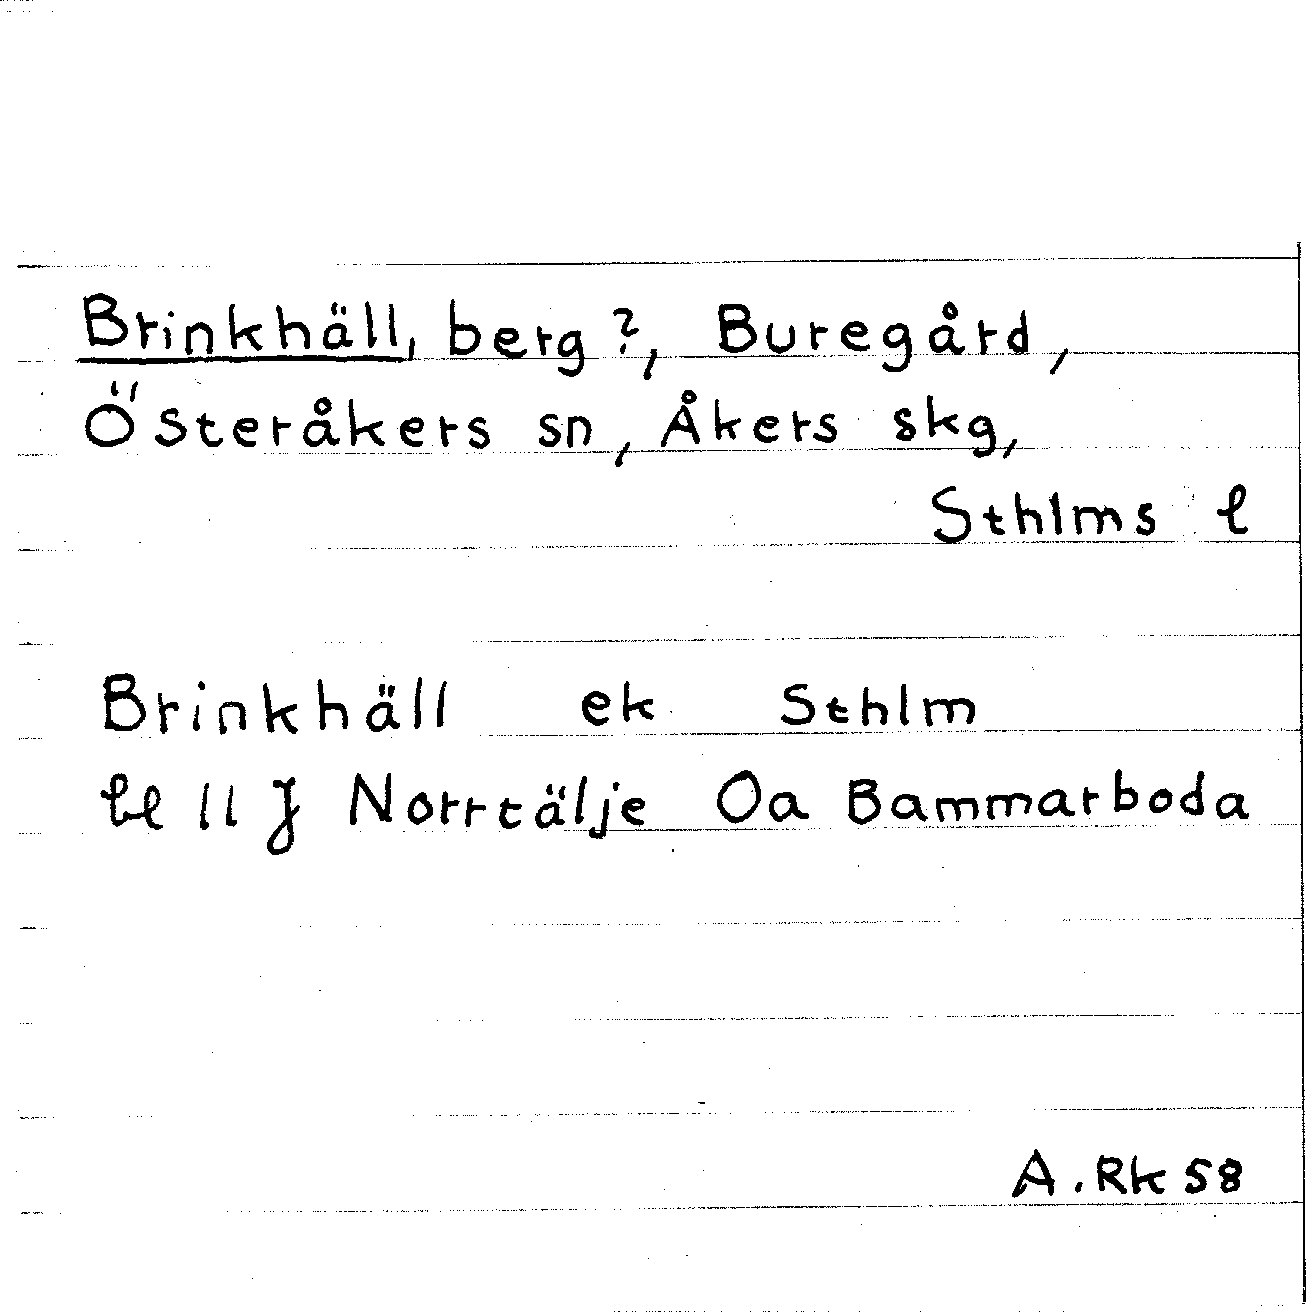 Brinkhäll, berg?, Buregård,
Österåkers sn, Åkers skg,
Sthlms l
Brinkhäll ek Sthlm
11 J Norrtälje Oa Bammarboda
A. Rk 58